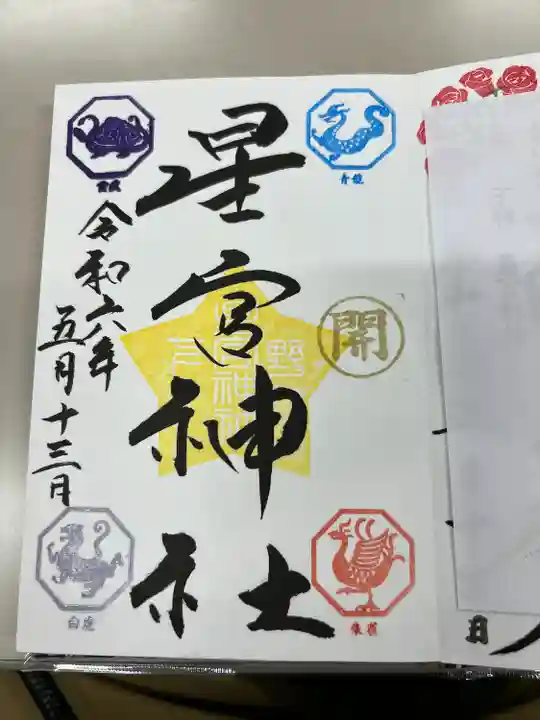 青龍
星宮神社
開
朱雀
玄武
令和六年
五月十三日
白虎
日